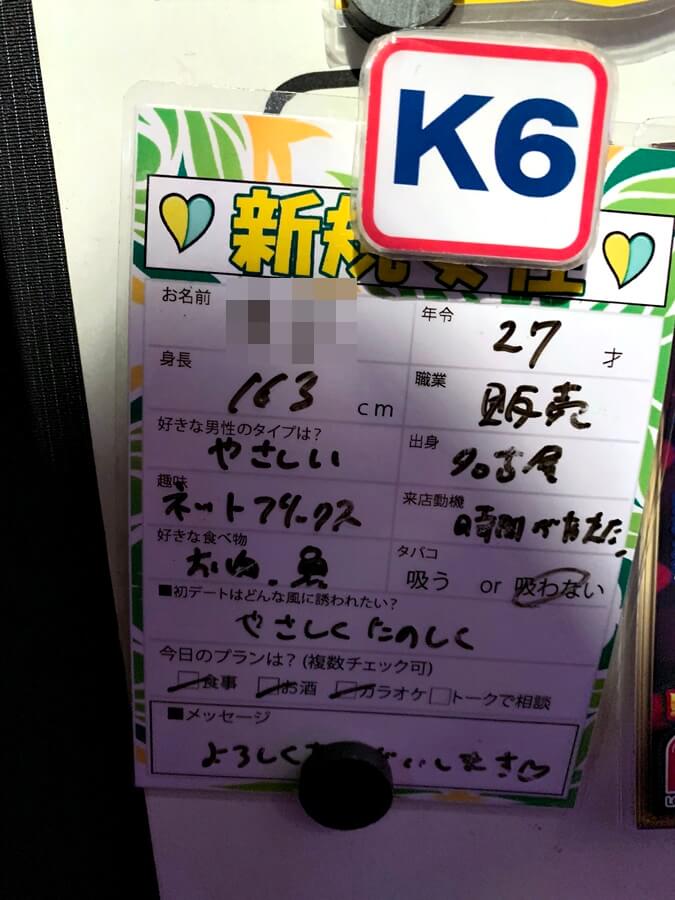 K6
新規女性
お名前
年令 27 才
身長 163 cm
職業 販売
好きな男性のタイプは?
やさしい
出身 名古屋
趣味
ネットフリックス
来店動機
時間があえた
好きな食べ物
お肉、魚
タバコ
吸う or 吸わない
■初デートはどんな風に誘われたい?
やさしくたのしく
今日のプランは?(複数チェック可)
食事 お酒 カラオケ トークで相談
■メッセージ
よろしく